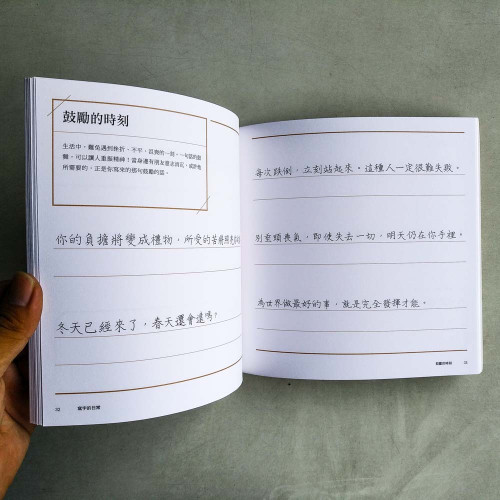 鼓勵的時刻
生活中,難免遇到挫折、不平、沮喪的一刻,一句話的鼓
勵,可以讓人重振精神!當身邊有朋友意志消沉,或許他
所需要的,正是你寫來的那句鼓勵的話。
你的負擔將變成禮物,所受的苦將照亮
冬天已經來了,春天還會遠嗎?
32 寫字的日常
每次跌倒,立刻站起來。這種人一定很難失敗。
別垂頭喪氣,即使失去一切,明天仍在你手裡。
為世界做最好的事,就是完全發揮才能。
鼓勵的時刻 33